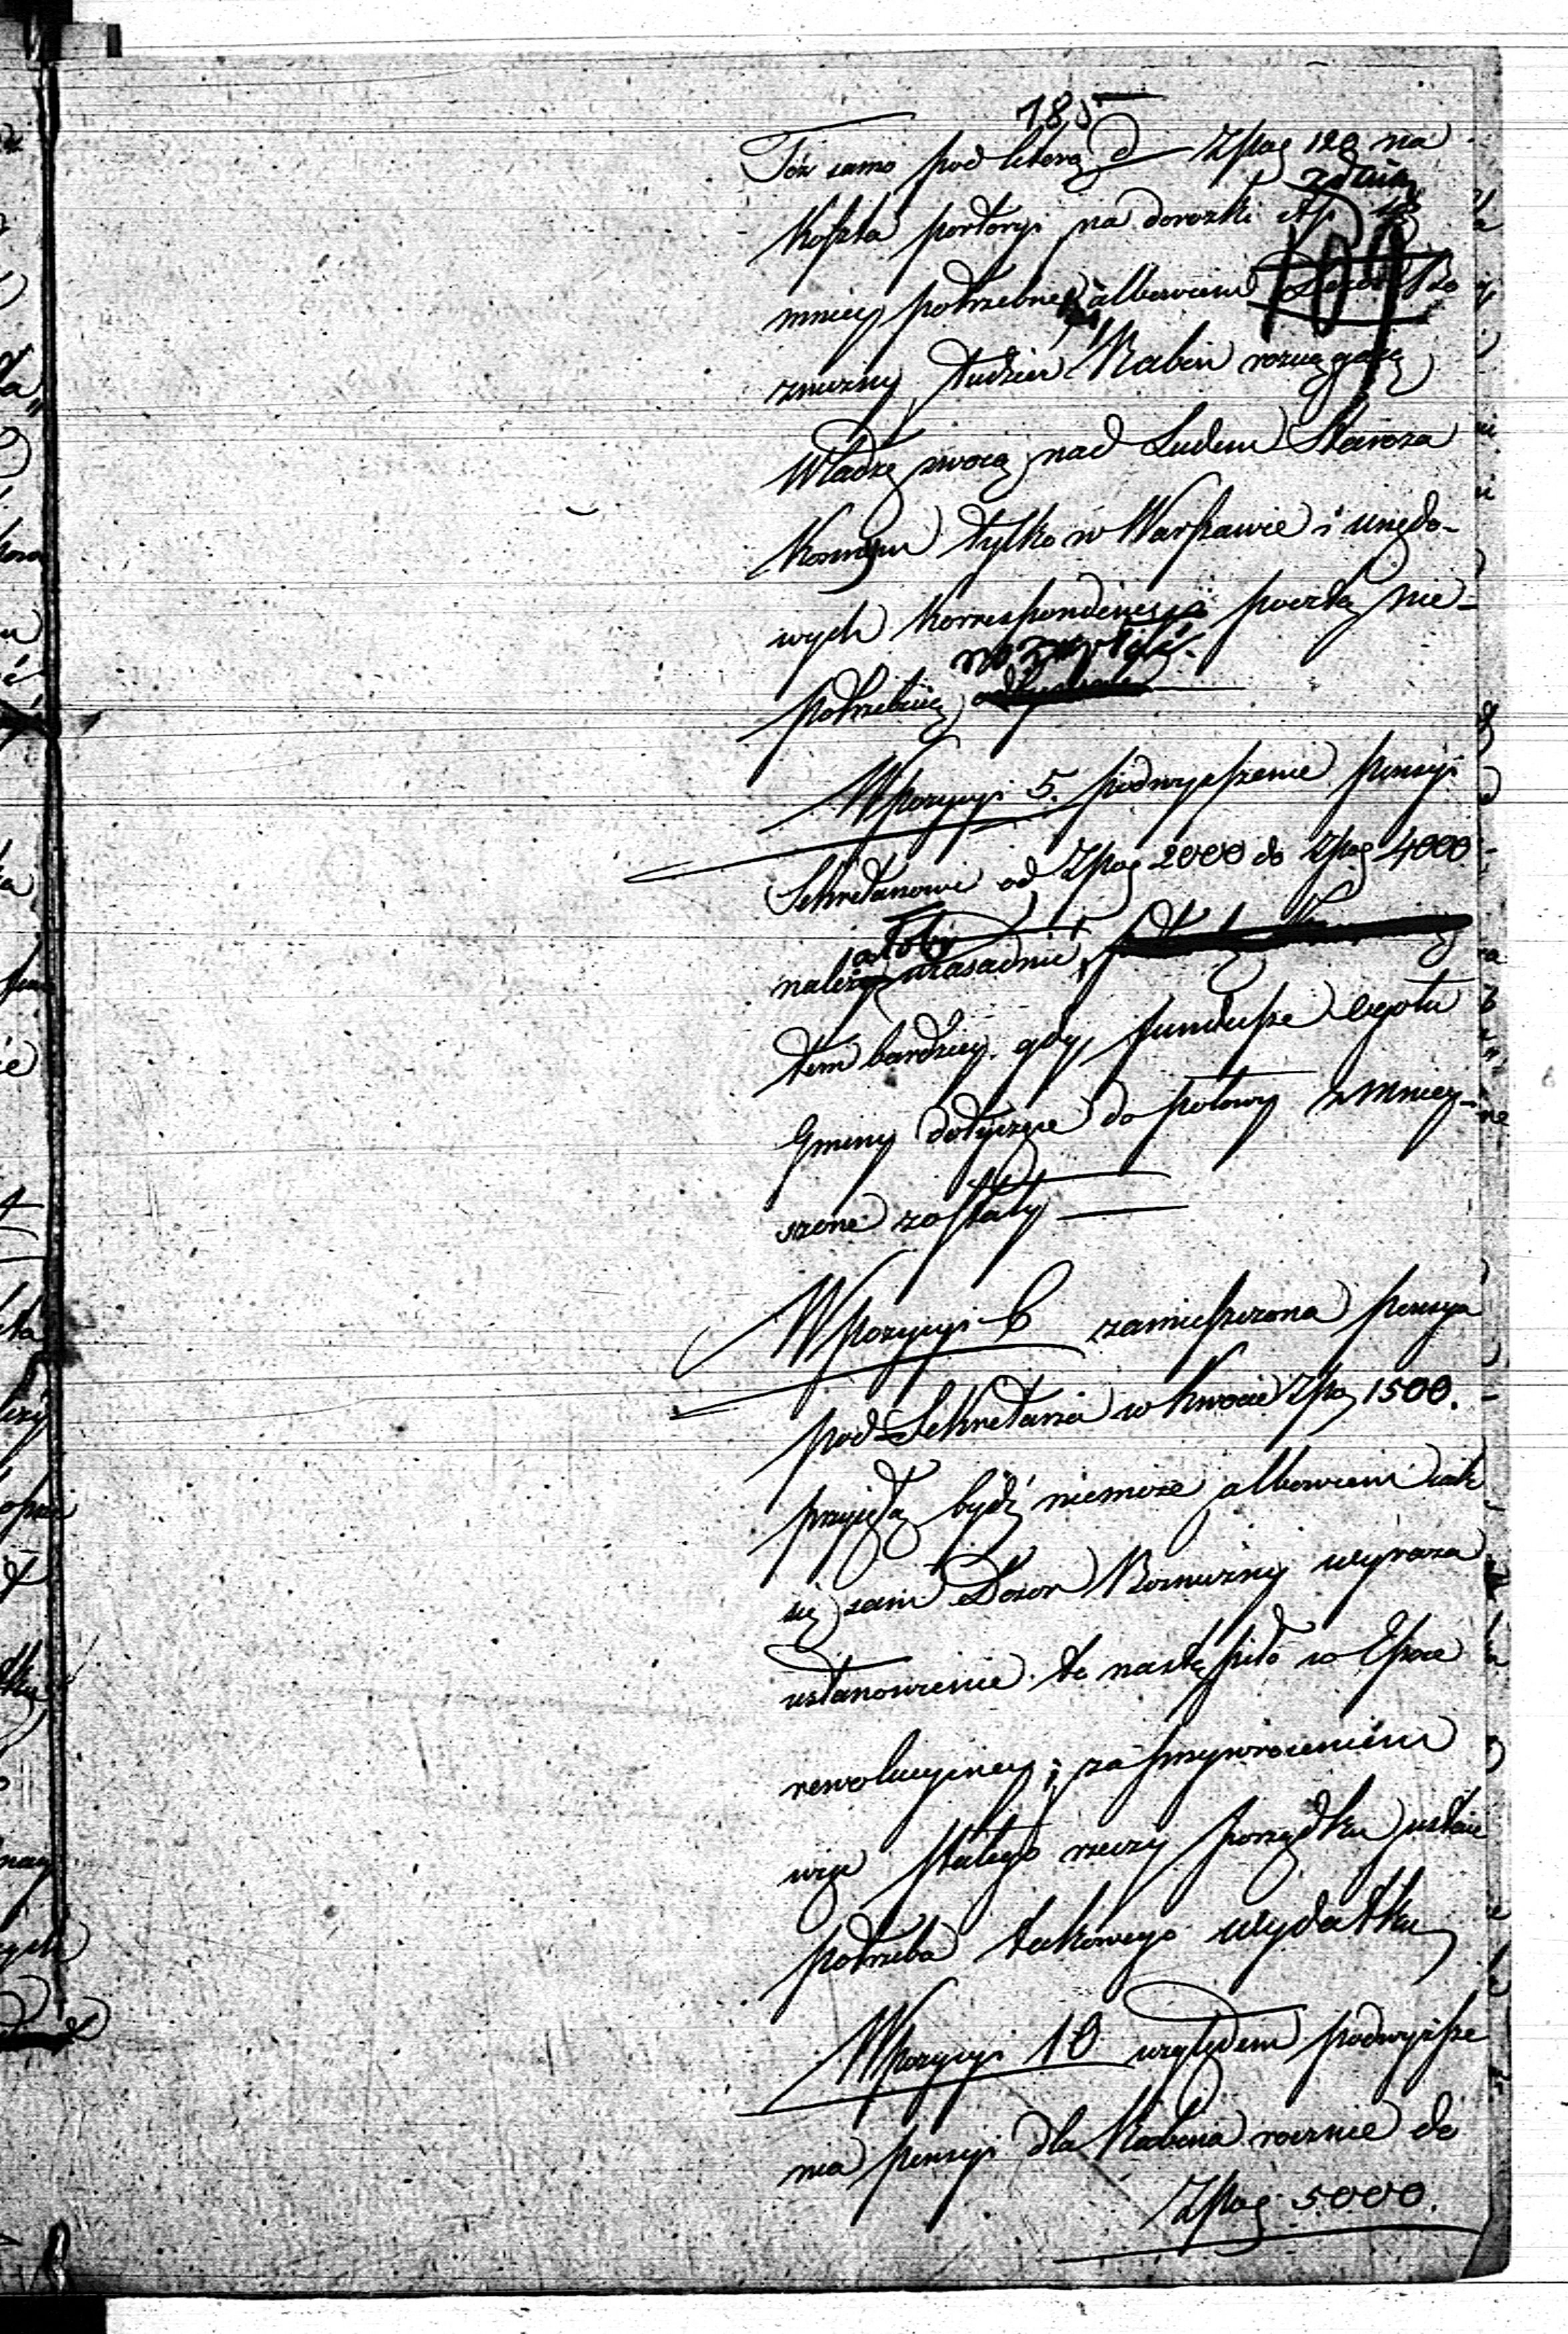 185
Toż samo pod literą d Złpog 120 na
zdaią
Koszta portoryi na dorozki etp są
169
mniey potrzebne albowiem Dozor Bo
zniczny tudzież Rabin rozciągaią
Władzę swoią nad Ludem Staroza
konnym tylko w Warszawie i urzędo-
wych korrespondencyi pocztą nie
potrzebuią
W pozycyi 5. podwyszenie pensyi
Sekretarzowi od Złpog 2000 do Złpog 4000
należałoby uzasadnić,
tem bardziey gdy fundusze ogołu
Gminy dotyczące do połowy zmniey-
szone zostały
W pozycyi 6 zamieszczona pensya
pod-Sekretarza w kwocie Złpog 1500.
przyjętą bydź niemoże albowiem iak
się sam Dozor Bozniczny wyraza
ustanowienie to nastąpiło w Epoce
rewolucyiney; za przywroceniem
więc stałego rzeczy porządku ustaie
potrzeba takowego wydatku
W pozycyi 10 względem podwyższe
nia pensyi dla Rabina rocznie do
Złpog 5000.